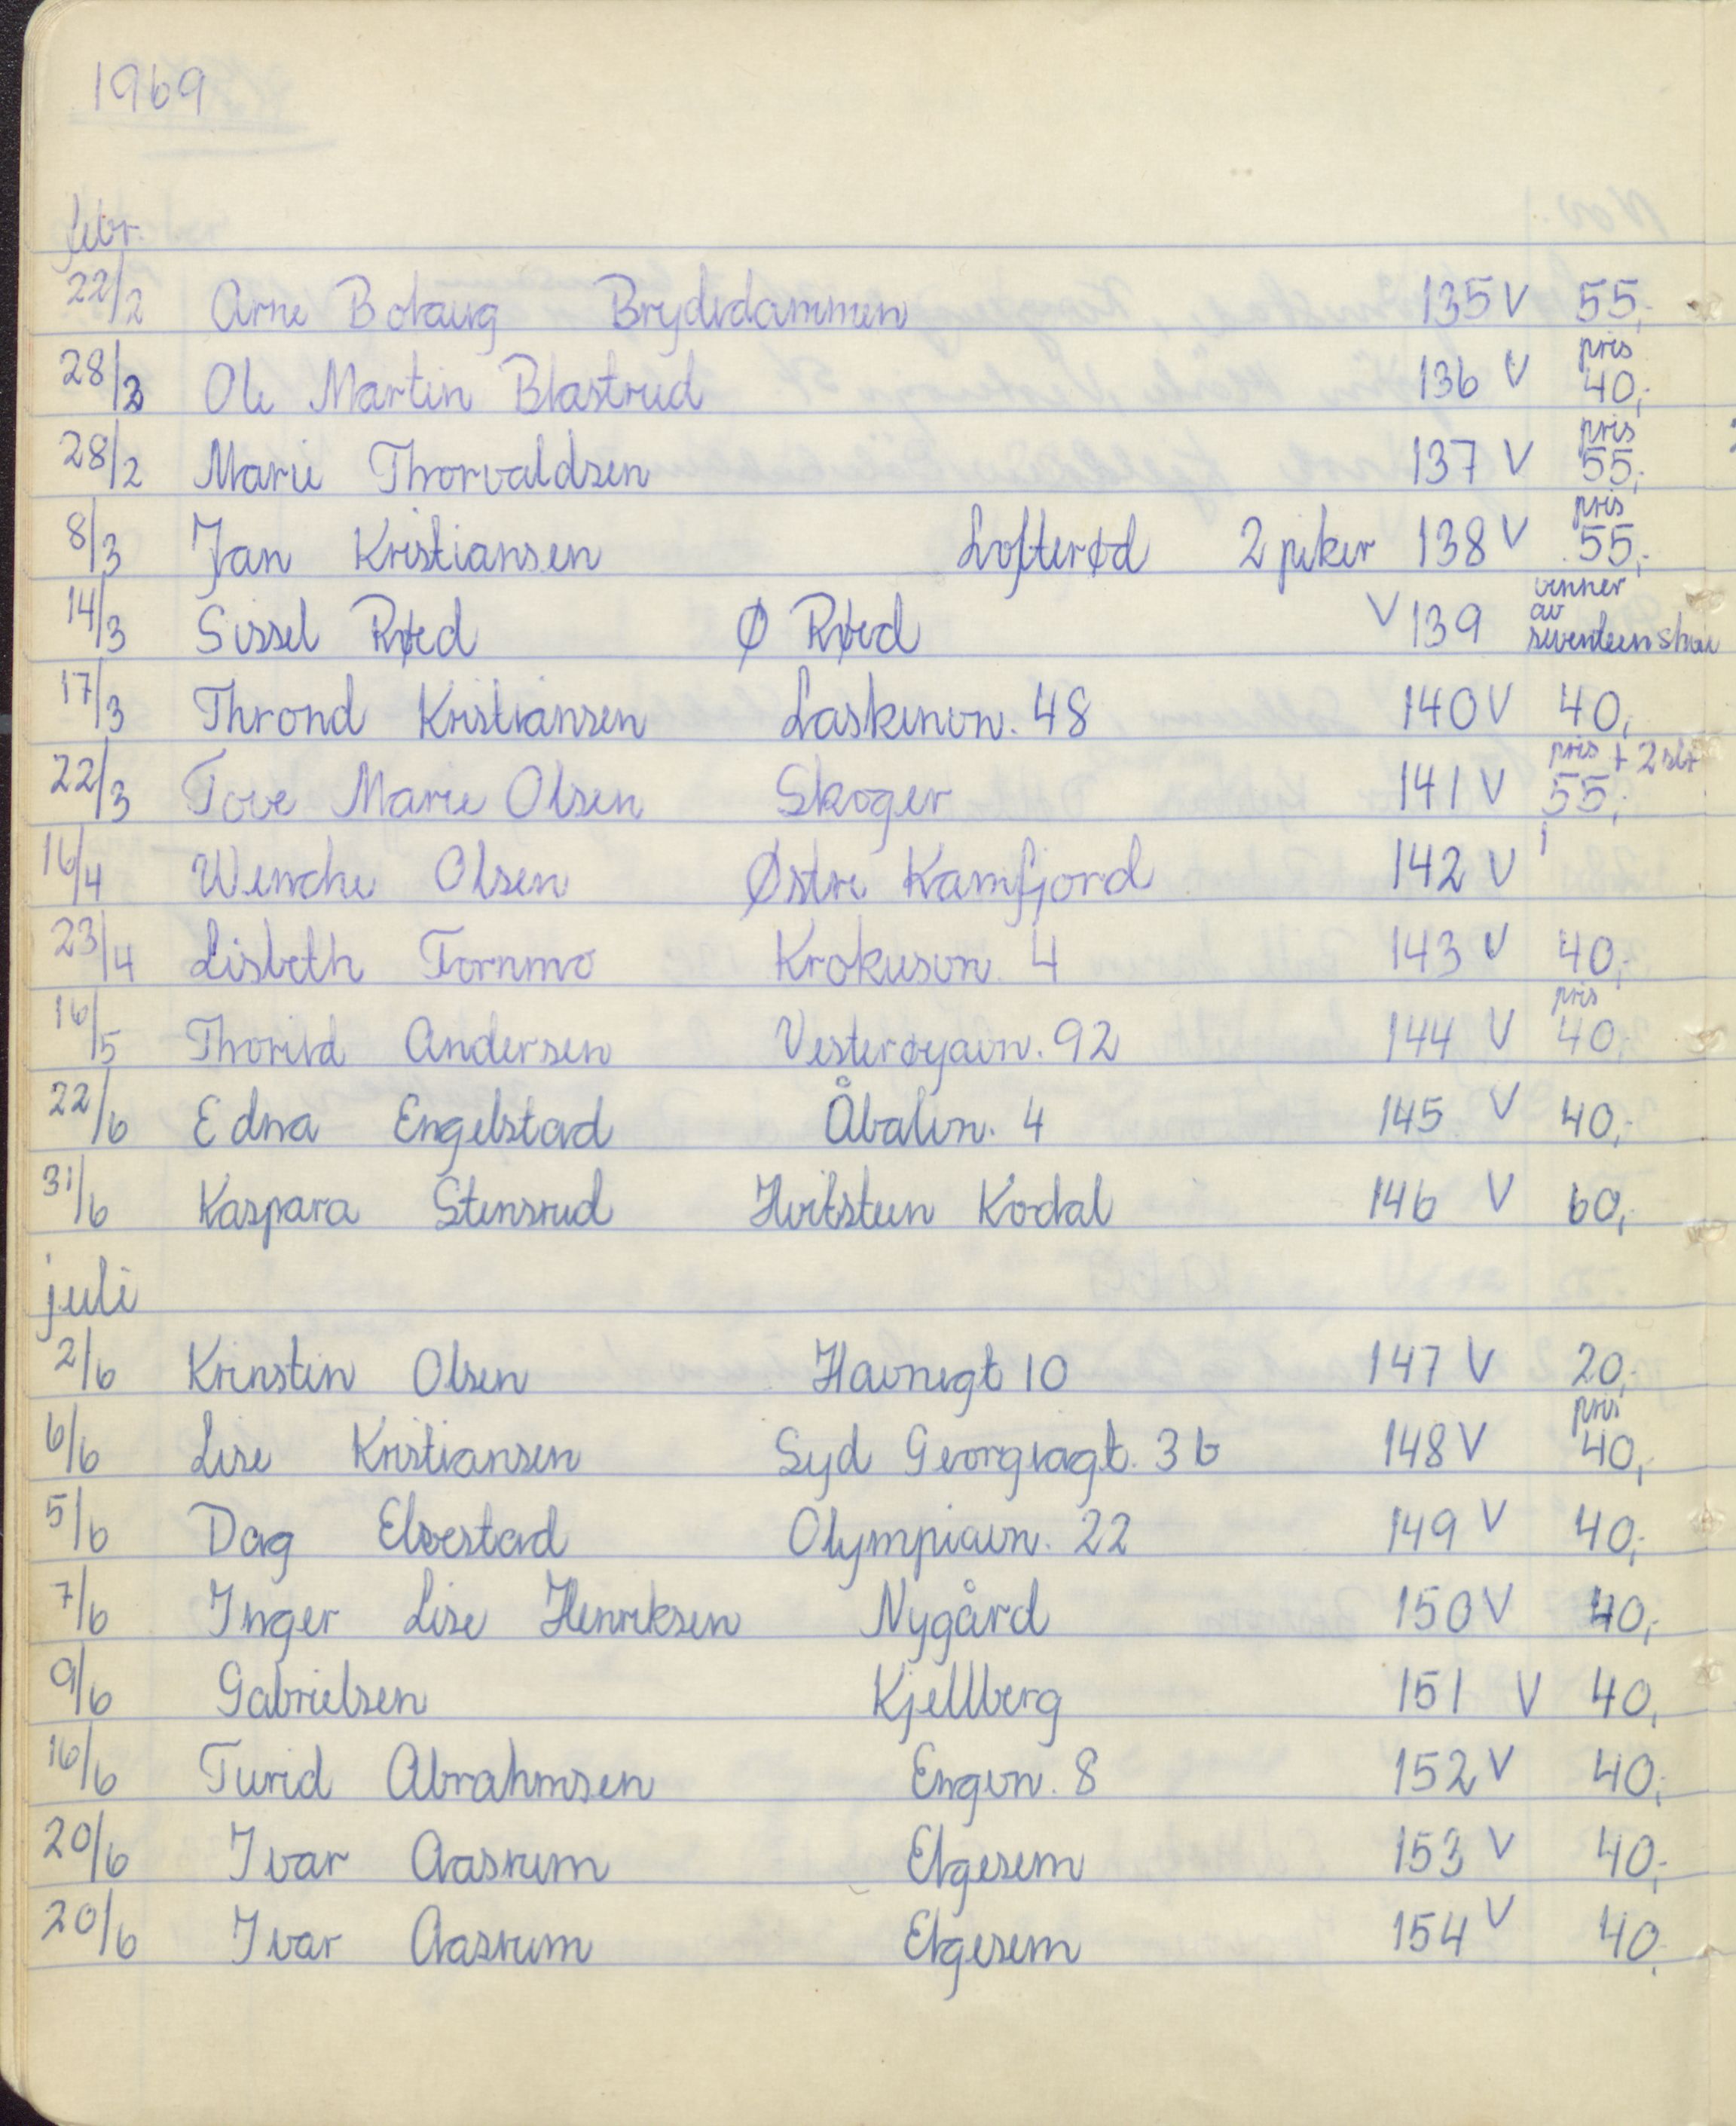 1969
febr.
22/2 Arne Bolaug Brydedammen 135 V 55,-
28/2 Ole Martin Blastrud 136 V pris 40,-
28/2 Marie Thorvaldsen 137 V pris 55,-
8/3 Jan Kristiansen Lofterød 2 piker 138 V pris 55,-
14/3 Sissel Røed Ø Røed V 139 venner av seventeen
17/3 Thrond Kristiansen Laskenvn. 48 140 V 40,
22/3 Tove Marie Olsen Skoger 141 V pris 55,- + 2
16/4 Wenche Olsen Østre Kamfjord 142 V
23/4 Lisbeth Tornmo Krokusvn. 4 143 V 40,-
16/5 Thorild Andersen Vesterøyavn. 92 144 V pris 40,-
22/6 Edna Engelstad Åbolvn. 4 145 V 40,-
31/6 Kaspara Stensrud Hvitsteen Kodal 146 V 60,-
juli
2/6 Krinstin Olsen Havnegt 10 147 V 20,-
6/6 Lise Kristiansen Syd Georgiagt. 3b 148 V pris 40,-
5/6 Dag Elvestad Olympiavn. 22 149 V 40,-
7/6 Inger Lise Henriksen Nygård 150 V 40,-
9/6 Gabrielsen Kjellberg 151 V 40,
16/6 Turid Abrahmsen Engvn. 8 152 V 40,-
20/6 Ivar Aasrum Elgesem 153 V 40,-
20/6 Ivar Aasrum Elgesem 154 V 40,